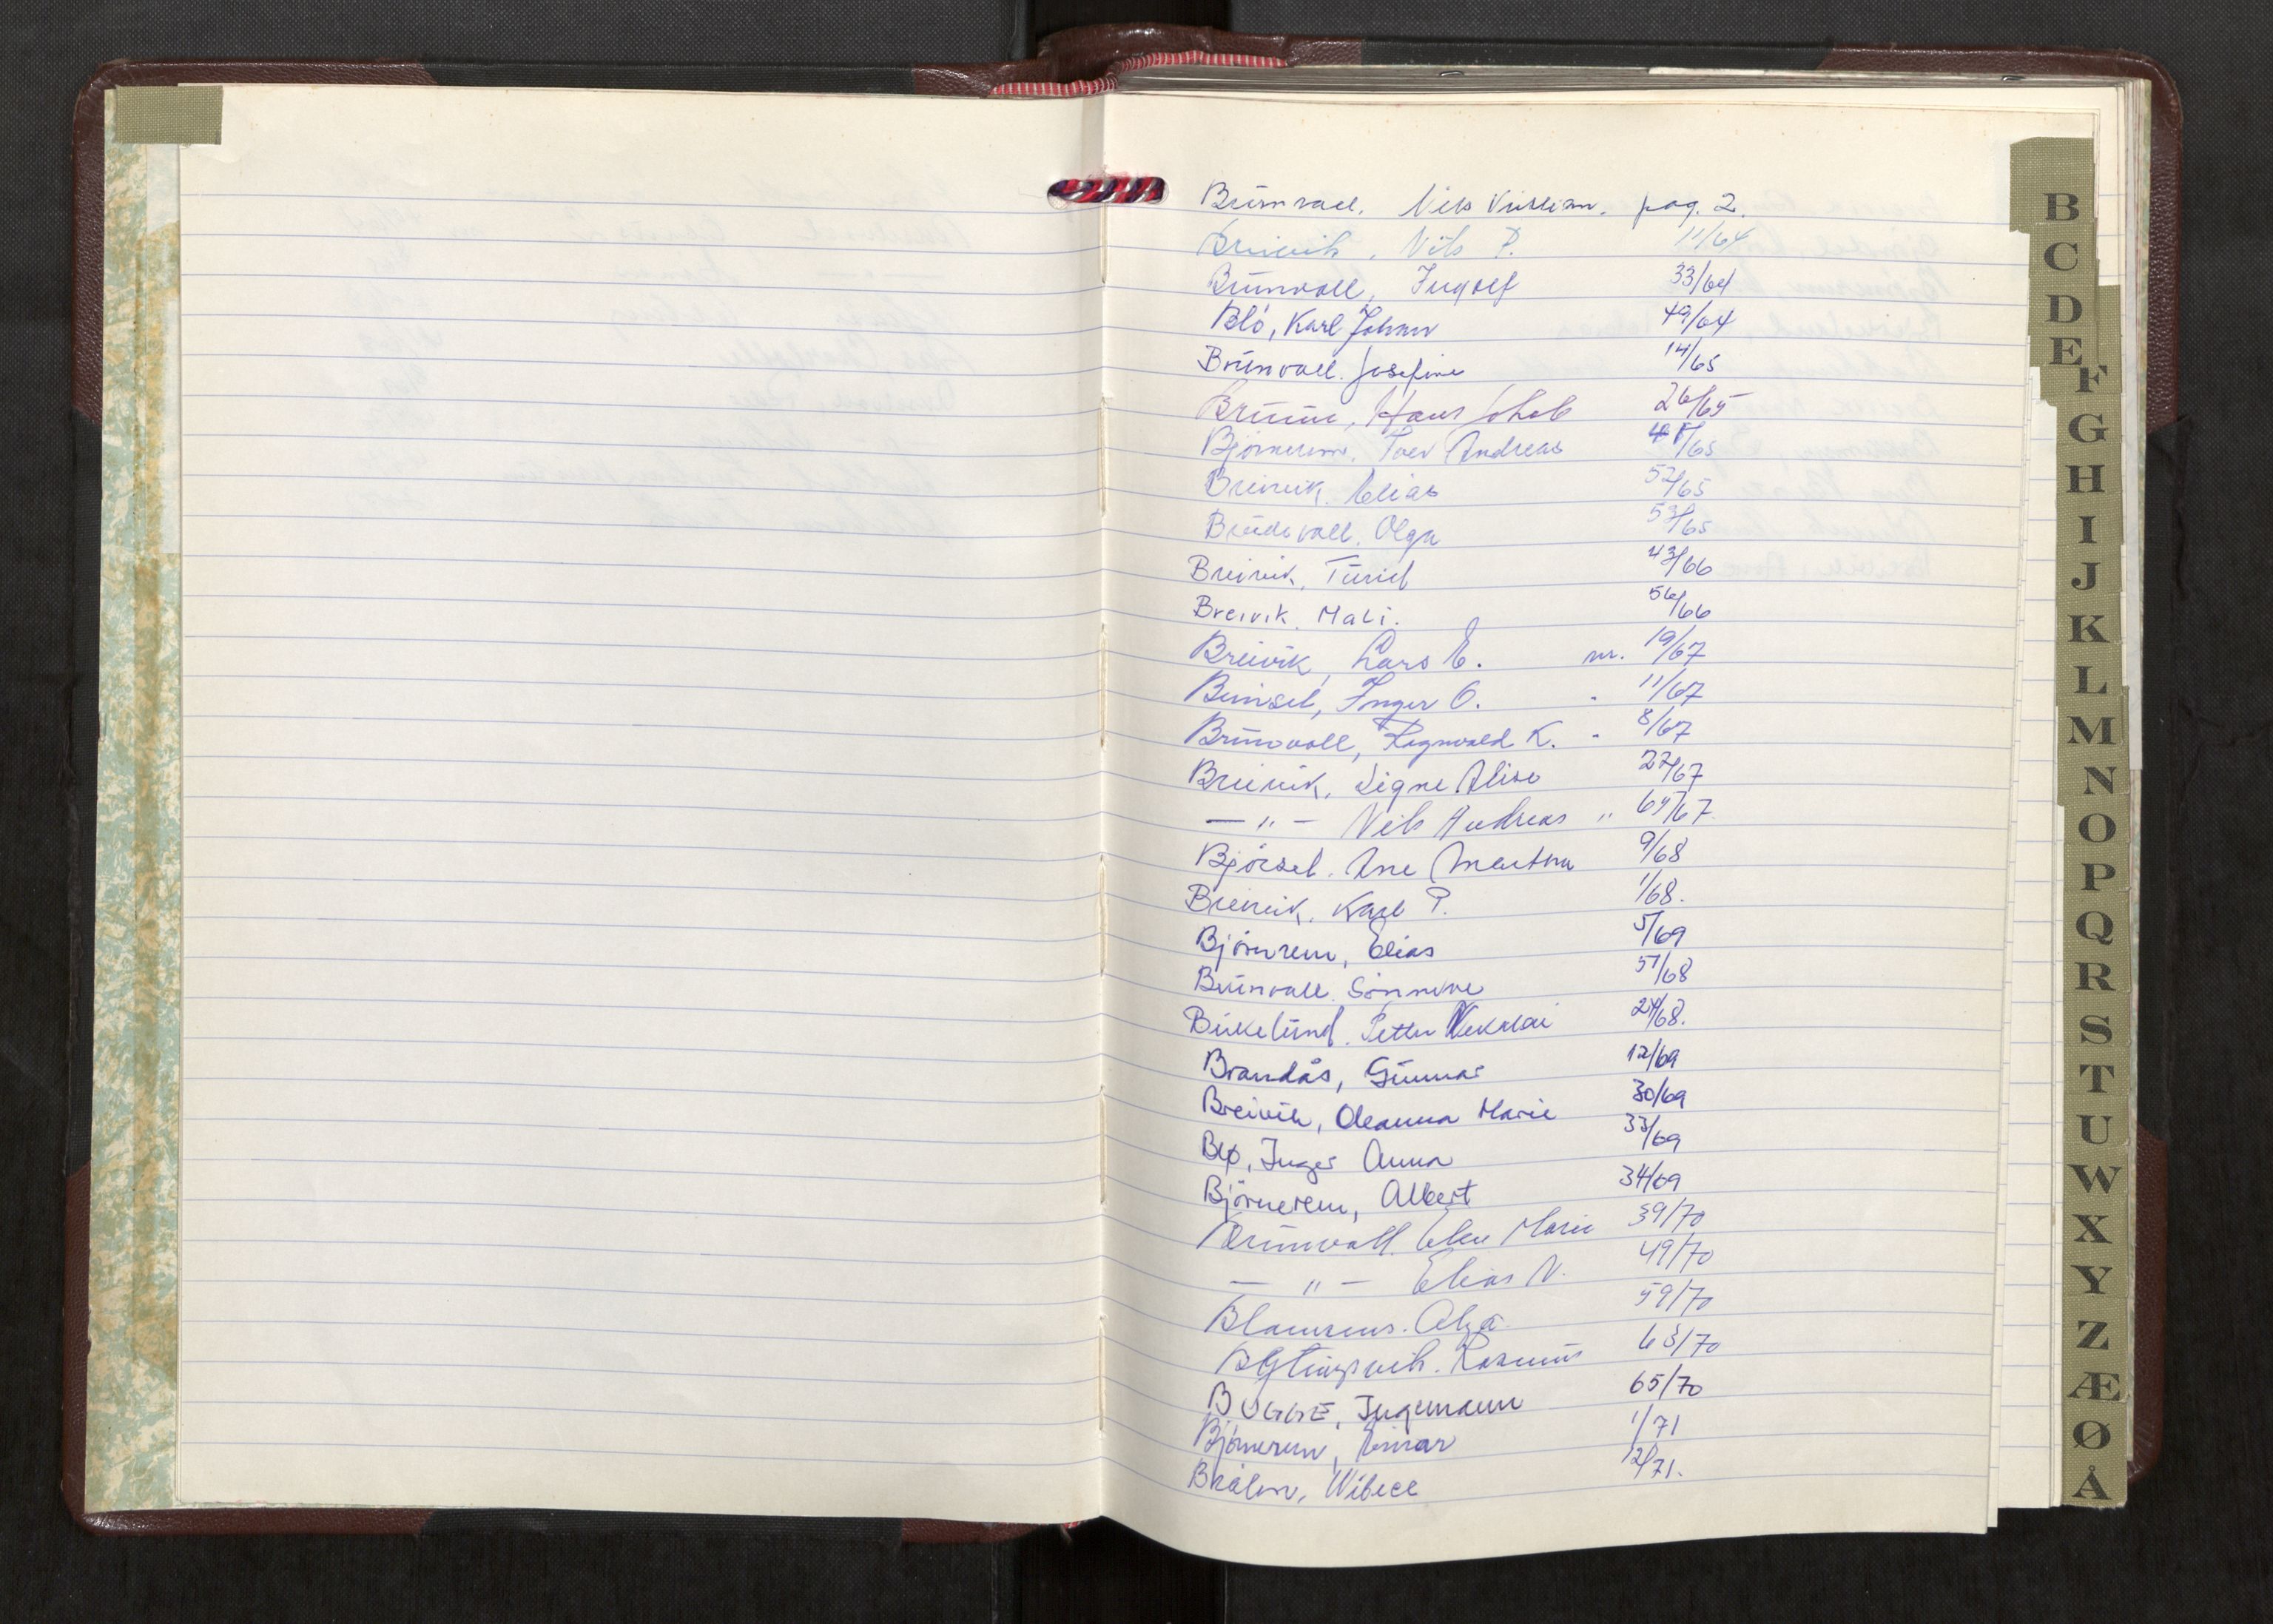 Brünvoll. Nils Kristian. pag. 2.
Breivik, Nils P. 11/64
Brünvoll, Ingolf 33/64
Blö, Karl Johan 49/64
Brünvoll. Josefine 14/65
Hans Jakob 26/65
Björnerem. Andreas /65
Breivik. Elias 52/65
Olga 53/65
Breivik, Türid 43/66
Breivik. Mali. 56/66
Breivik, Lars E. nr. 19/67
Inger O. " 11/67
Brünvoll, Ragnvald K. " 8/67
Breivik, Signe Alise 27/67
— " — Nils Andreas " 64/67.
Ane Martha 9/68
Breivik. Karl P. 1/68.
Björnrem, Elias 5/69
Brünvoll. 51/68
Birkelünd. Petter Nikolai 24/68.
Brandås, Günnar 12/69
Breivik, Oleanna Marie 30/69
Blø, Inger Anna 33/69
Björnerem, Albert 34/69
Brünvoll. Marie 39/70
— " — Elias N. 49/70
59/70
Rasmüs 63/70
BUGGE, Ingemann 65/70
Björnerem, Einar 1/71
12/71.
B
C
D
E
F
G
H
I
J
K
L
M
N
O
P
Q
R
S
T
U
W
X
Y
Z
Æ
Ø
Å